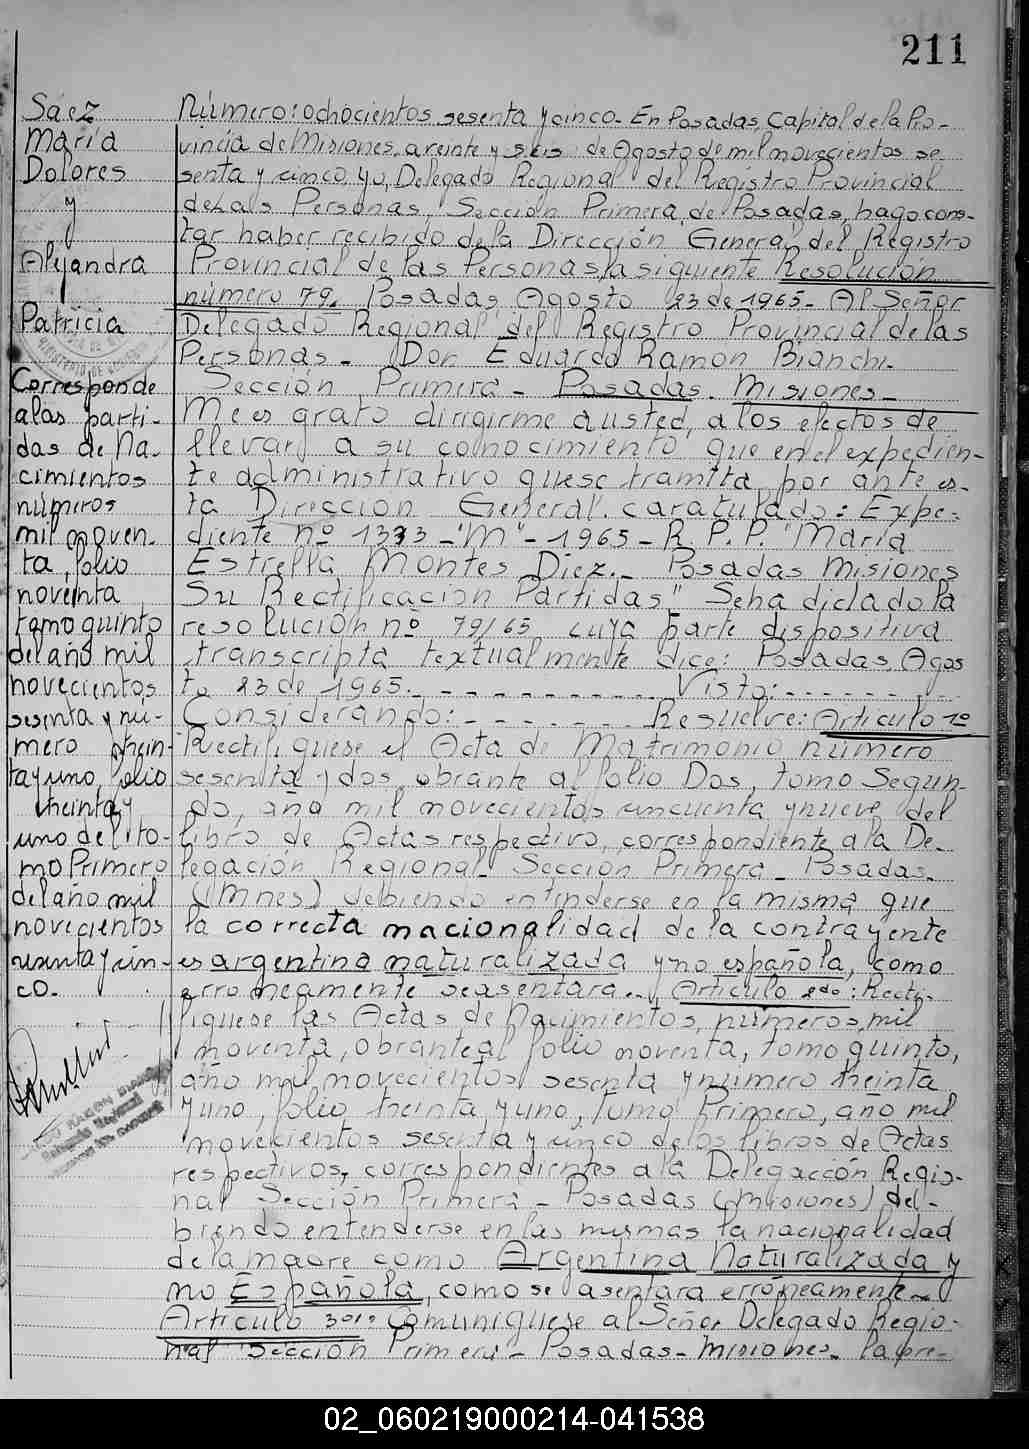 211
Sáez
María
Dolores
y
Alejandra
Patricia
Corresponde
a las parti-
das de Na-
cimientos
números
mil noven-
ta, folio
noventa
tomo quinto
del año mil
novecientos
sesenta y nú-
mero trein-
ta y uno, folio
treinta y
uno del to-
mo Primero
del año mil
novecientos
sesenta y cin-
co.
Número: ochocientos sesenta y cinco. En Posadas, Capital de la Pro-
vincia de Misiones, a veinte y seis de Agosto de mil novecientos se-
senta y cinco, yo, Delegado Regional del Registro Provincial
de las Personas, Sección Primera, de Posadas, hago cons-
tar haber recibido de la Dirección General del Registro
Provincial de las Personas, la siguiente Resolución
número 79. Posadas, Agosto 23 de 1965- Al Señor
Delegado Regional del Registro Provincial de las
Personas- Don Eduardo Ramon Bianchi.
Sección Primera- Posadas. Misiones-
Me es grato dirigirme a usted, a los efectos de
llevar a su conocimiento que en el expedien-
te administrativo que se tramita por ante es-
ta Direccion General. caratulado: Expe-
diente nº 1373-"M"-1965-R.P.P. "María
Estrella Montes Diez.- Posadas Misiones
Su Rectificación Partidas" Se ha dictado la
resolución nº 79/65 cuya parte dispositiva
transcripta textualmente dice: Posadas, Agos
to 23 de 1965.- - - - - - - - - - Visto: - - - - - - - -
Considerando: - - - - - - - Resuelve: Artículo 1º
Rectifiquese el Acta de Matrimonio número
sesenta y dos, obrante al folio Dos, tomo Segun-
do, año mil novecientos cincuenta y nueve del
libro de Actas respectivo, correspondiente a la De-
legación Regional- Sección Primera- Posadas-
(Mnes) debiendo entenderse en la misma que
la correcta nacionalidad de la contrayente
es argentina naturalizada y no española, como
erroneamente se asentara.- Artículo 2do: Recti-
fiquese las Actas de Nacimientos, números, mil
noventa, obrante al folio noventa, tomo quinto,
año mil novecientos sesenta y número treinta
y uno, folio treinta y uno, Tomo Primero, año mil
novecientos sesenta y cinco de los libros de Actas
respectivos, correspondientes a la Delegacción Regio-
nal Sección Primera- Posadas (Misiones) de-
biendo entenderse en las mismas la nacionalidad
de la madre como Argentina Naturalizada y
no Española, como se asentara erróneamente-
Artículo 3o: Comuníquese al Señor Delegado Regio-
nal Sección Primera- Posadas- Misiones. la pre-
02_060219000214-041538